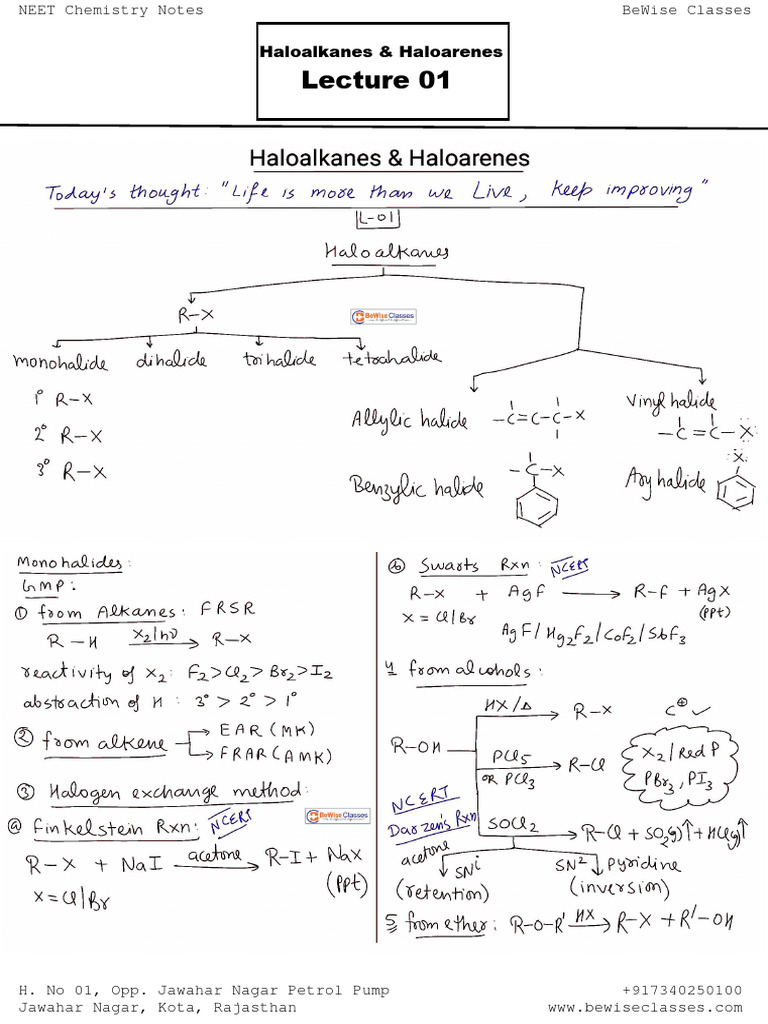 NEET Chemistry Notes BeWise Classes
Haloalkanes & Haloarenes
Lecture 01
Haloalkanes & Haloarenes
Today's thought: "Life is more than we Live, keep improving"
L-01
Haloalkanes
R-X
BeWise Classes
monohalide dihalide trihalide tetrahalide
1° R-X
2° R-X
3° R-X
Allylic halide -C=C-C-X
Vinyl halide -C=C-X
Benzylic halide -C-X
Aryhalide X
Monohalides:
GMP:
① from Alkanes: FRSR
R-H X2/hν → R-X
reactivity of X2: F2>Cl2>Br2>I2
abstraction of H: 3°>2°>1°
② from alkene → EAR (MK)
→ FRAR (AMK)
③ Halogen exchange method:
BeWise Classes
ⓐ Finkelstein Rxn: NCERT
R-X + NaI acetone → R-I + NaX
(ppt)
X = Cl/Br
ⓑ Swarts Rxn: NCERT
R-X + AgF → R-F + AgX
X = Cl/Br (ppt)
AgF/Hg2F2/CoF2/SbF3
4 from alcohols:
HX/Δ → R-X C⊕ ✓
R-OH
PCl5 → R-Cl
or PCl3
X2/Red P
PBr3, PI3
NCERT
Darzen's Rxn
SOCl2 → R-Cl + SO2(g)↑ + HCl(g)↑
acetone SNi SN2 pyridine
(retention) (inversion)
5 from ether: R-O-R' HX → R-X + R'-OH
H. No 01, Opp. Jawahar Nagar Petrol Pump +917340250100
Jawahar Nagar, Kota, Rajasthan www.bewiseclasses.com